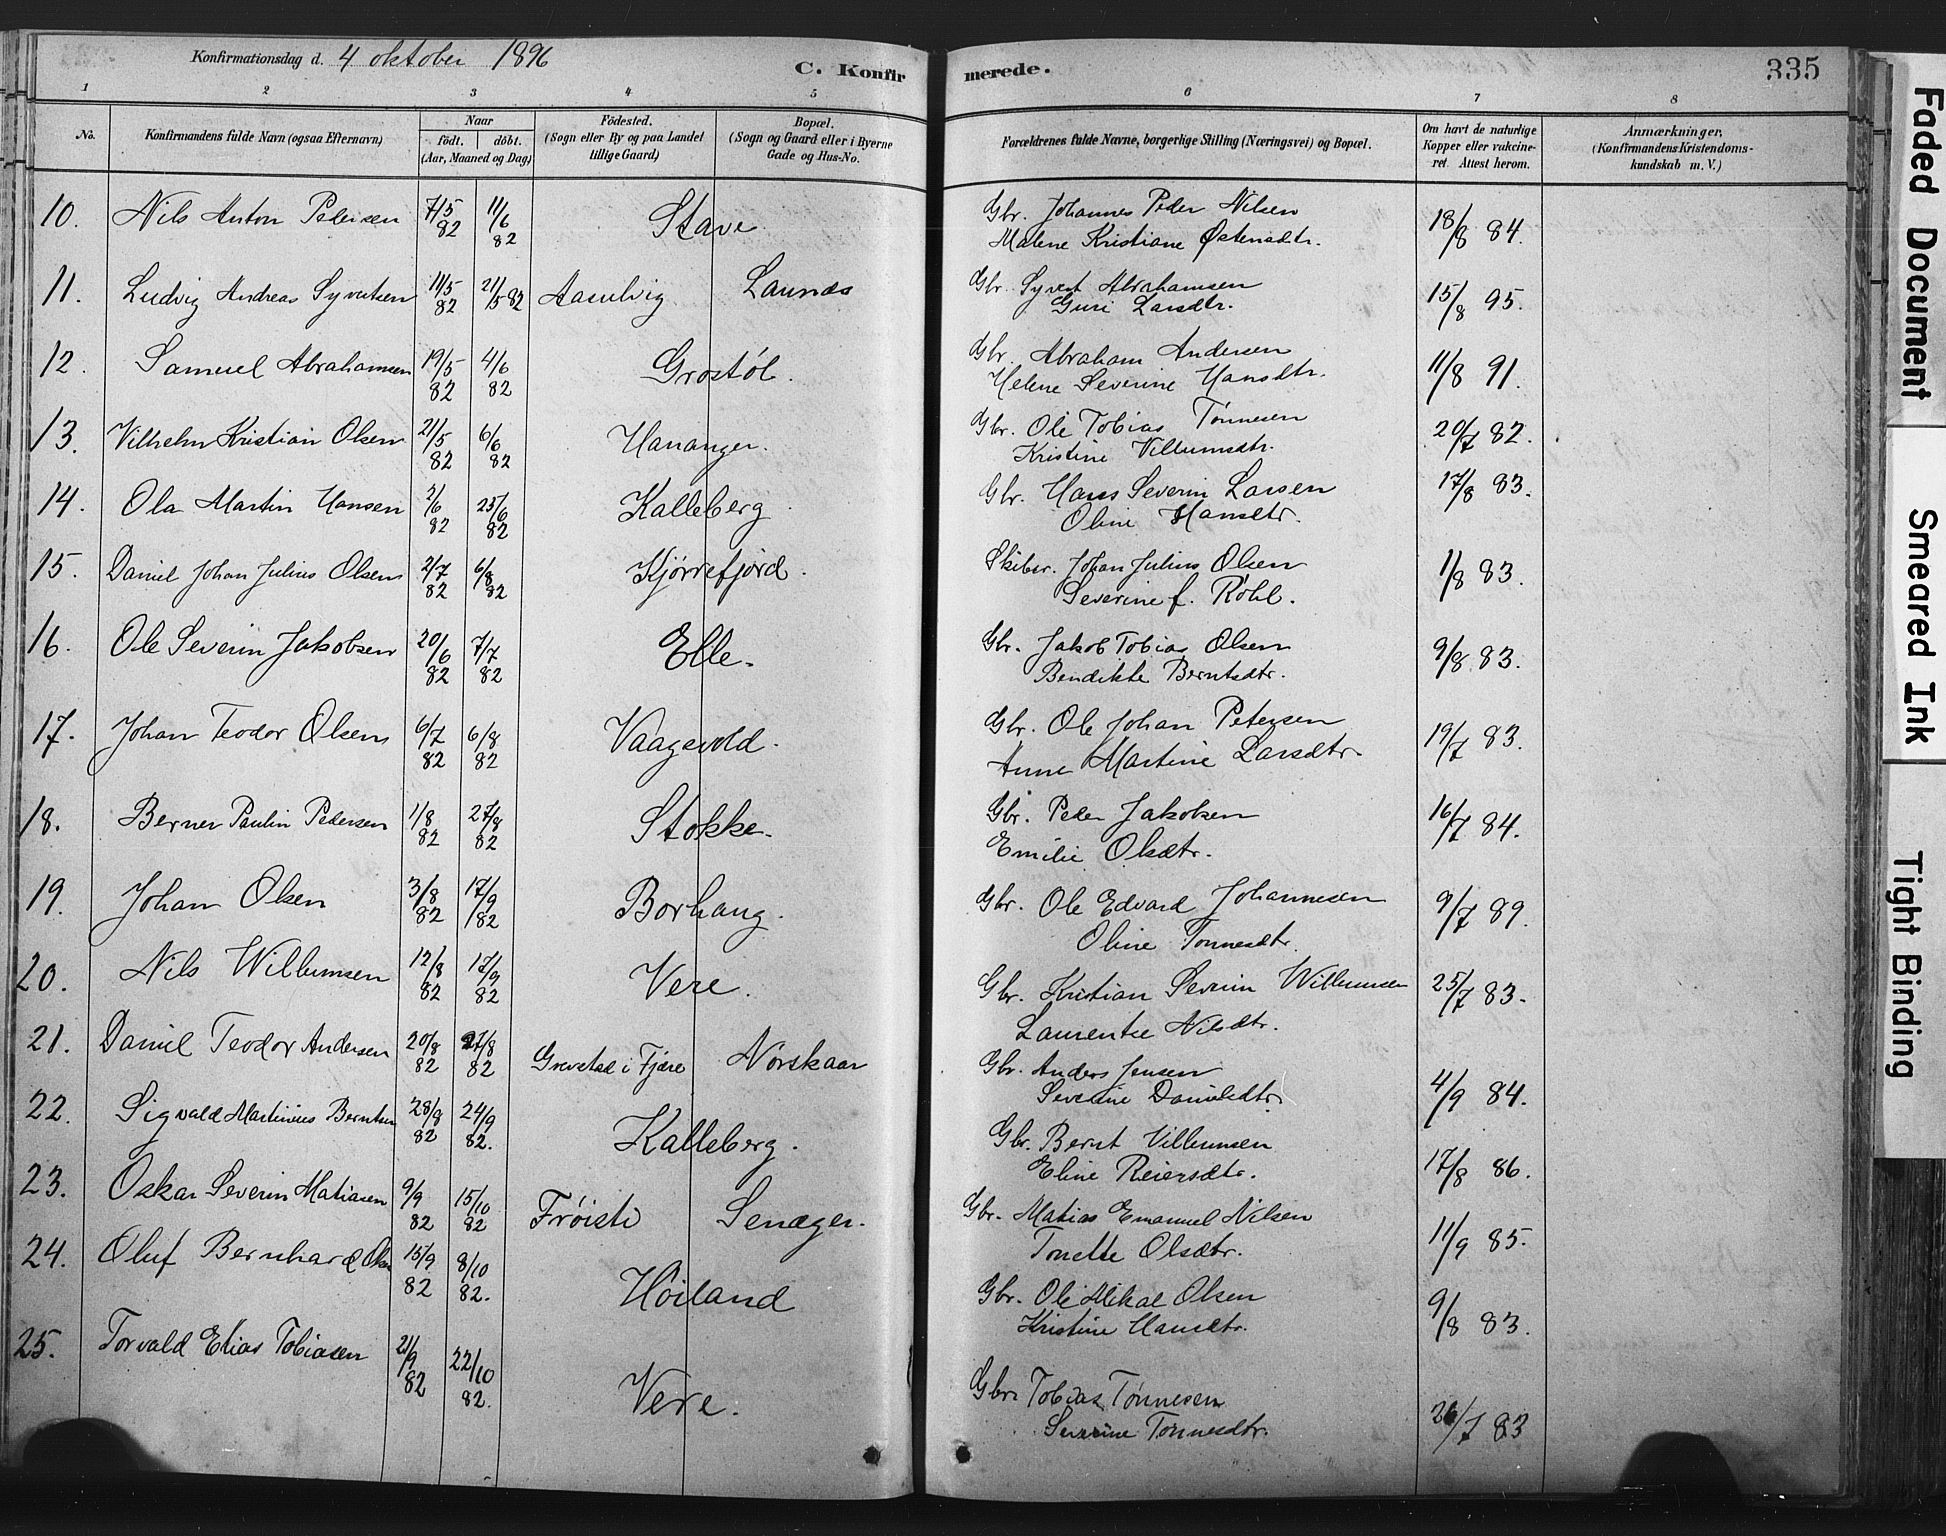 Konfirmationsdag d. 4 oktober 1896
C. Konfirmerede.
335
1 2 3 4 5 6 7 8
No.
Konfirmandens fulde Navn (ogsaa Efternavn)
Naar
födt. döbt.
(Aar, Maaned og Dag)
Födested.
(Sogn eller By og paa Landet
tillige Gaard)
Bopæl.
(Sogn og Gaard eller i Byerne
Gade og Hus-No.
Forældrenes fulde Navne, borgerlige Stilling (Næringsvei) og Bopæl.
Om havt de naturlige
Kopper eller vakcine-
ret. Attest herom.
Anmærkninger,
(Konfirmandens Kristendoms-
kundskab m. V.)
10. Nils Anton Pedersen 7/5 82 11/6 82 Stave. Gbr. Johannes Peder Nilsen 18/8 84.
Malene Kristiane Østensdtr.
11. Ludvig Andreas Syvertsen 11/5 82 21/5 82 Aasulvig Launæs Gbr. Syvert Abrahamsen 15/8 95.
Guri Larsdtr.
12. Samuel Abrahamsen 19/5 82 4/6 82 Grostøl. Gbr. Abraham Andersen 11/8 91.
Helene Severine Hansdtr.
13. Vilhelm Kristian Olsen 21/5 82 6/6 82 Hananger. Gbr. Ole Tobias Tønnesen 20/7 82.
Kristine Villumsdtr.
14. Ola Martin Hansen 2/6 82 25/6 82 Kalleberg. Gbr. Hans Severin Larsen 17/8 83.
Oline Hansdtr.
15. Daniel Johan Julius Olsen 2/7 82 6/8 82 Kjørrefjord. Skibsr. Johan Julius Olsen 1/8 83.
Severine f. Röhl.
16. Ole Severin Jakobsen 20/6 82 7/7 82 Elle. Gbr. Jakob Tobias Olsen 9/8 83.
Bendikte Berntsdtr.
17. Johan Teodor Olsen 6/7 82 6/8 82 Vaagsvold. Gbr. Ole Johan Petersen 19/7 83.
Anne Martine Larsdtr.
18. Berner Paulin Pedersen 1/8 82 27/8 82 Stokke. Gbr. Peder Jakobsen 16/7 84.
Emilie Olsdtr.
19. Johan Olsen 3/8 82 17/9 82 Borhaug. Gbr. Ole Edvard Johannesen 9/7 89.
Oline Tønnesdtr.
20. Nils Willumsen 12/8 82 17/9 82 Vere. Gbr. Kristian Severin Willumsen 25/7 83.
Laurentse Nilsdtr.
21. Daniel Teodor Andersen 20/8 82 27/8 82 Grevstad i Fjære Nørskaar Gbr. Anders Jensen 4/9 84.
Severine Danieldtr.
22. Sigvald Martinius Berntsen 28/8 82 24/9 82. Kalleberg. Gbr. Bernt Villumsen 17/8 86.
Eline Reiersdtr.
23. Oskar Severin Matiasen 9/9 82 15/10 82 Frøisti Senæger. Gbr. Matias Emanuel Nilsen 11/9 85.
Tonette Olsdtr.
24. Oluf Bernhard Olsen 15/9 82 8/10 82. Høiland Gbr. Ole Mikal Olsen 9/8 83.
Kristine Hansdtr.
25. Torvald Elias Tobiasen 21/9 82 22/10 82. Vere. Gbr. Tobias Tønnesen 26/7 83
Severine Tønnesdtr.
Faded Document
Smeared Ink
Tight Binding